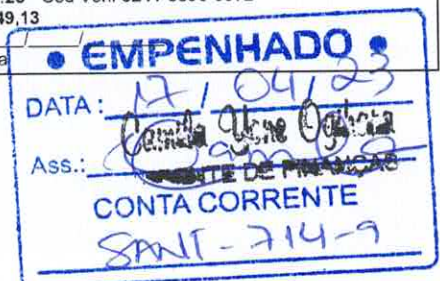 49,13
• EMPENHADO •
DATA: 17 / 04 / 23
Camila
Ass.:
DE FINANÇAS
CONTA CORRENTE
SANT - 714-9